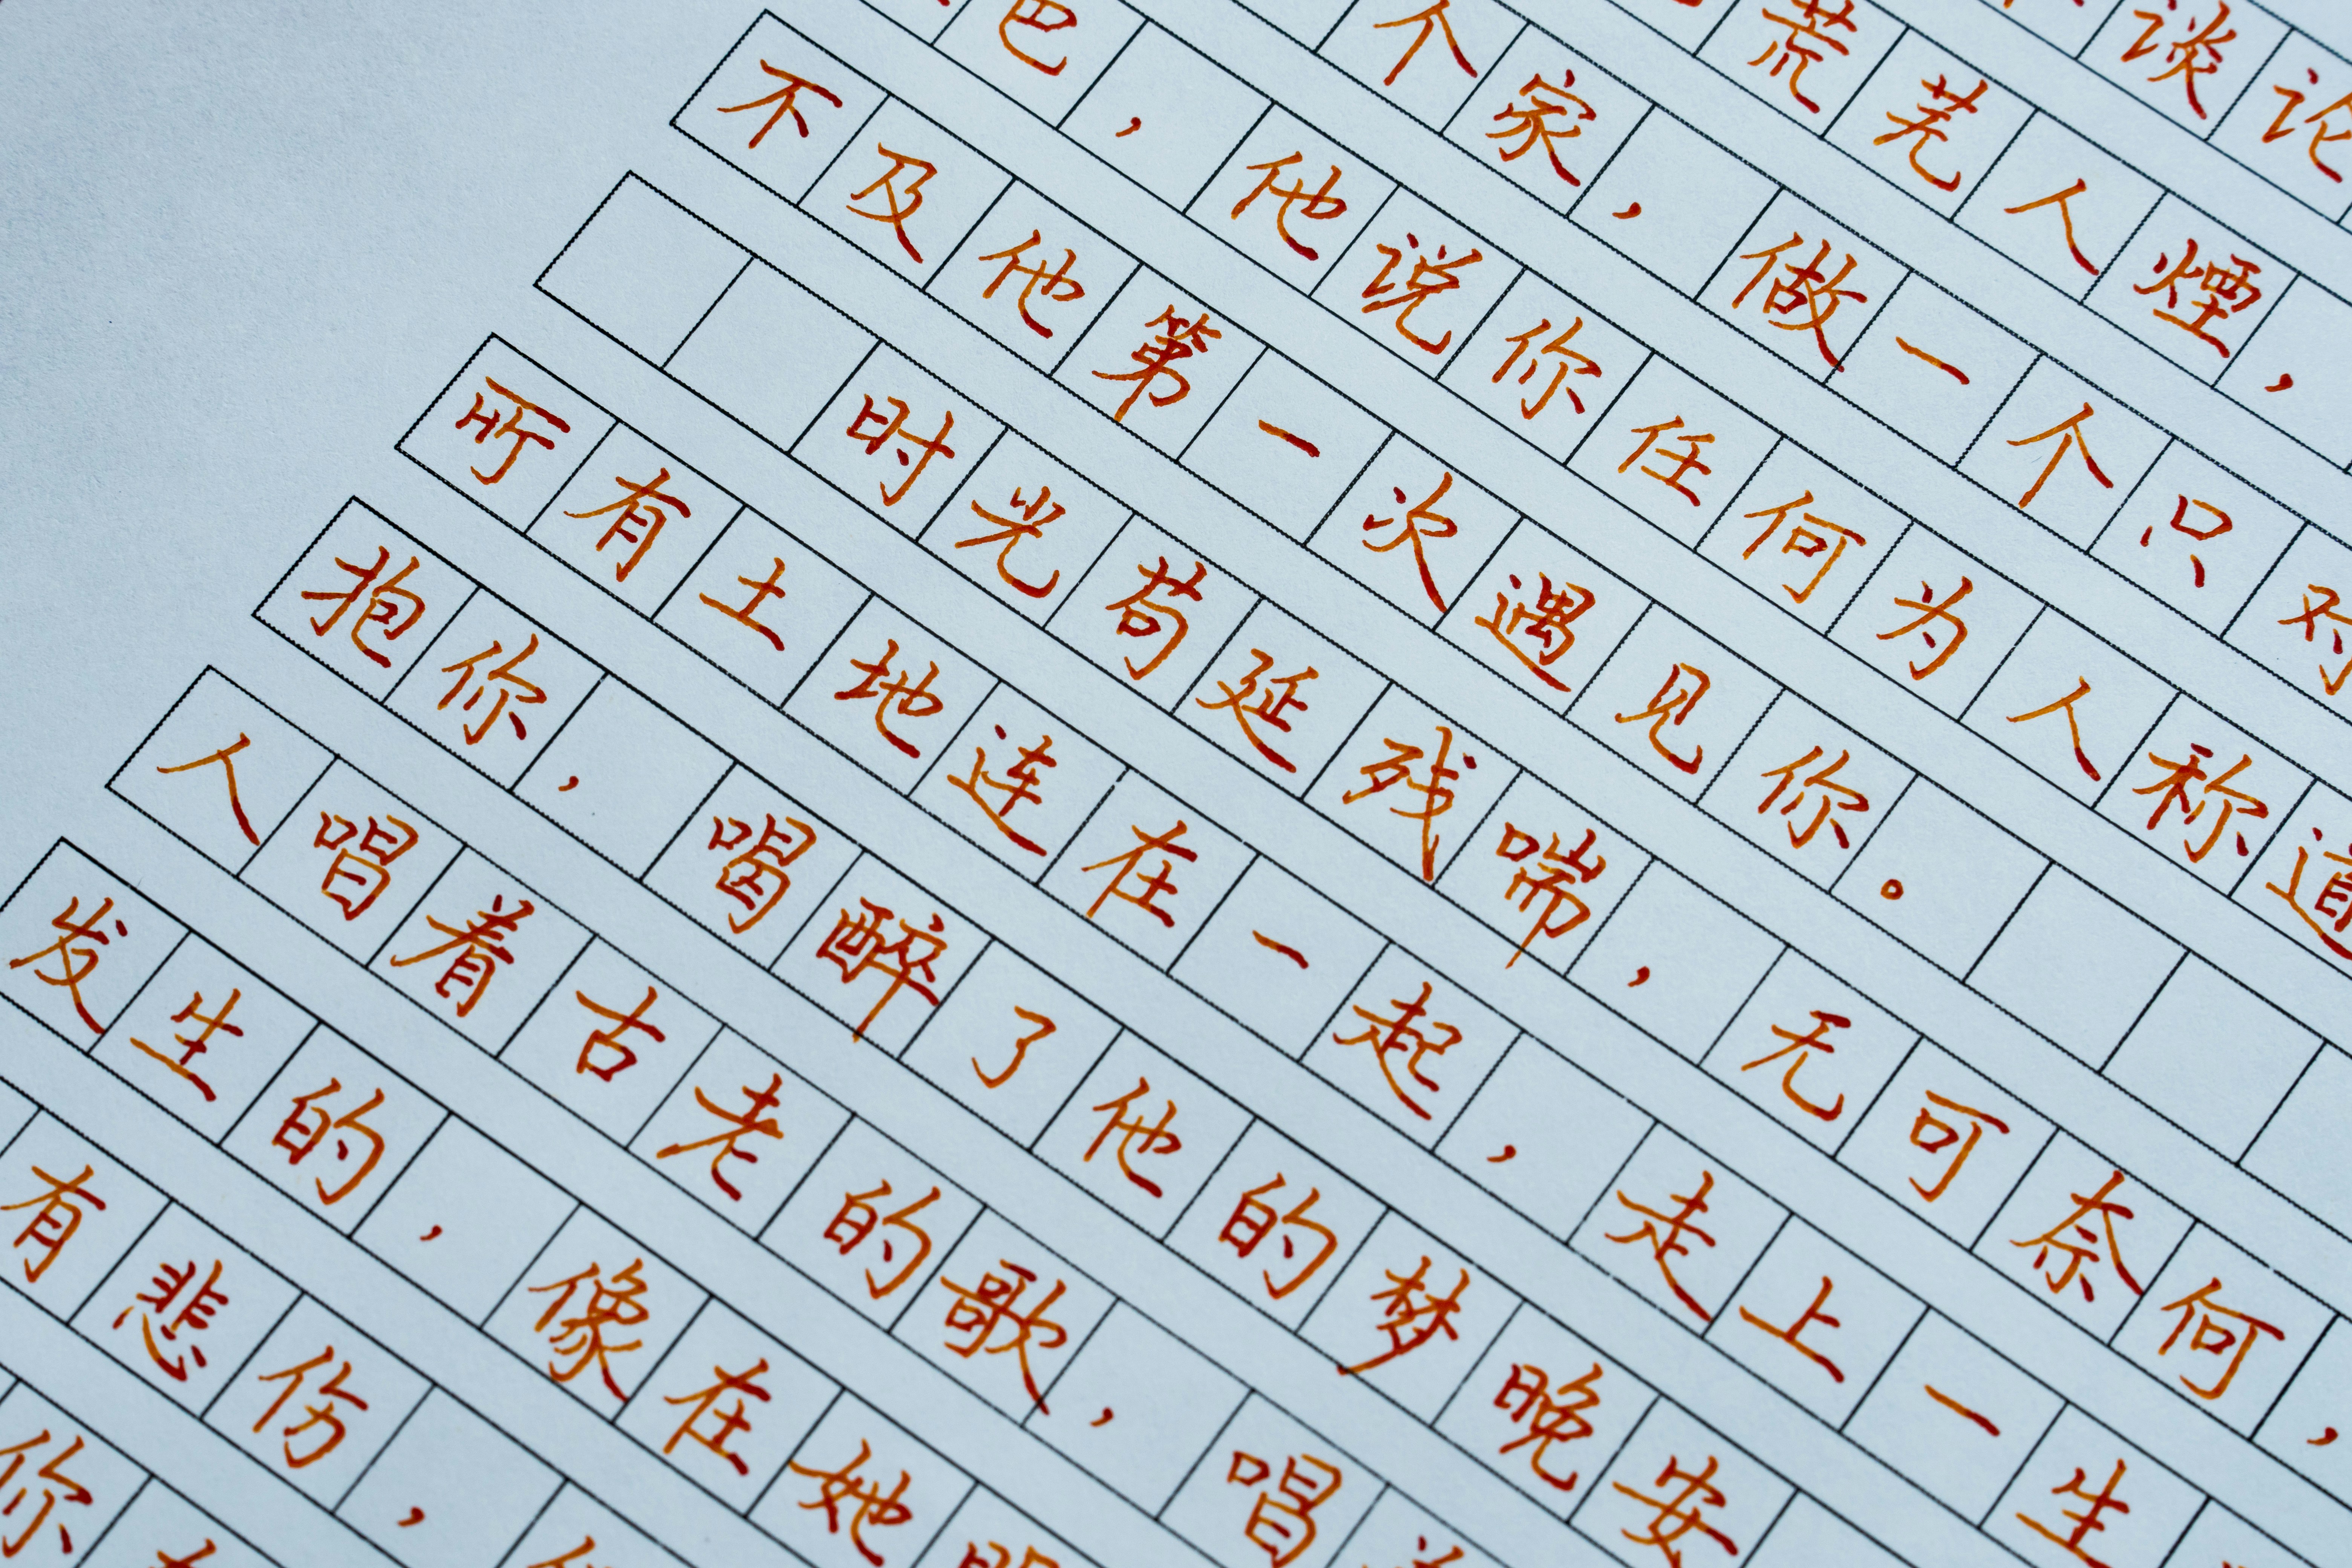 谈论
荒芜人煙,
个家,做一个只对
,他说你任何为人称道
不及他第一次遇见你。
时光苟延残喘,无可奈何,
所有土地连在一起,走上一生
抱你,喝醉了他的梦晚安
人唱着古老的歌,唱
发生的,像在她
有悲伤,
你